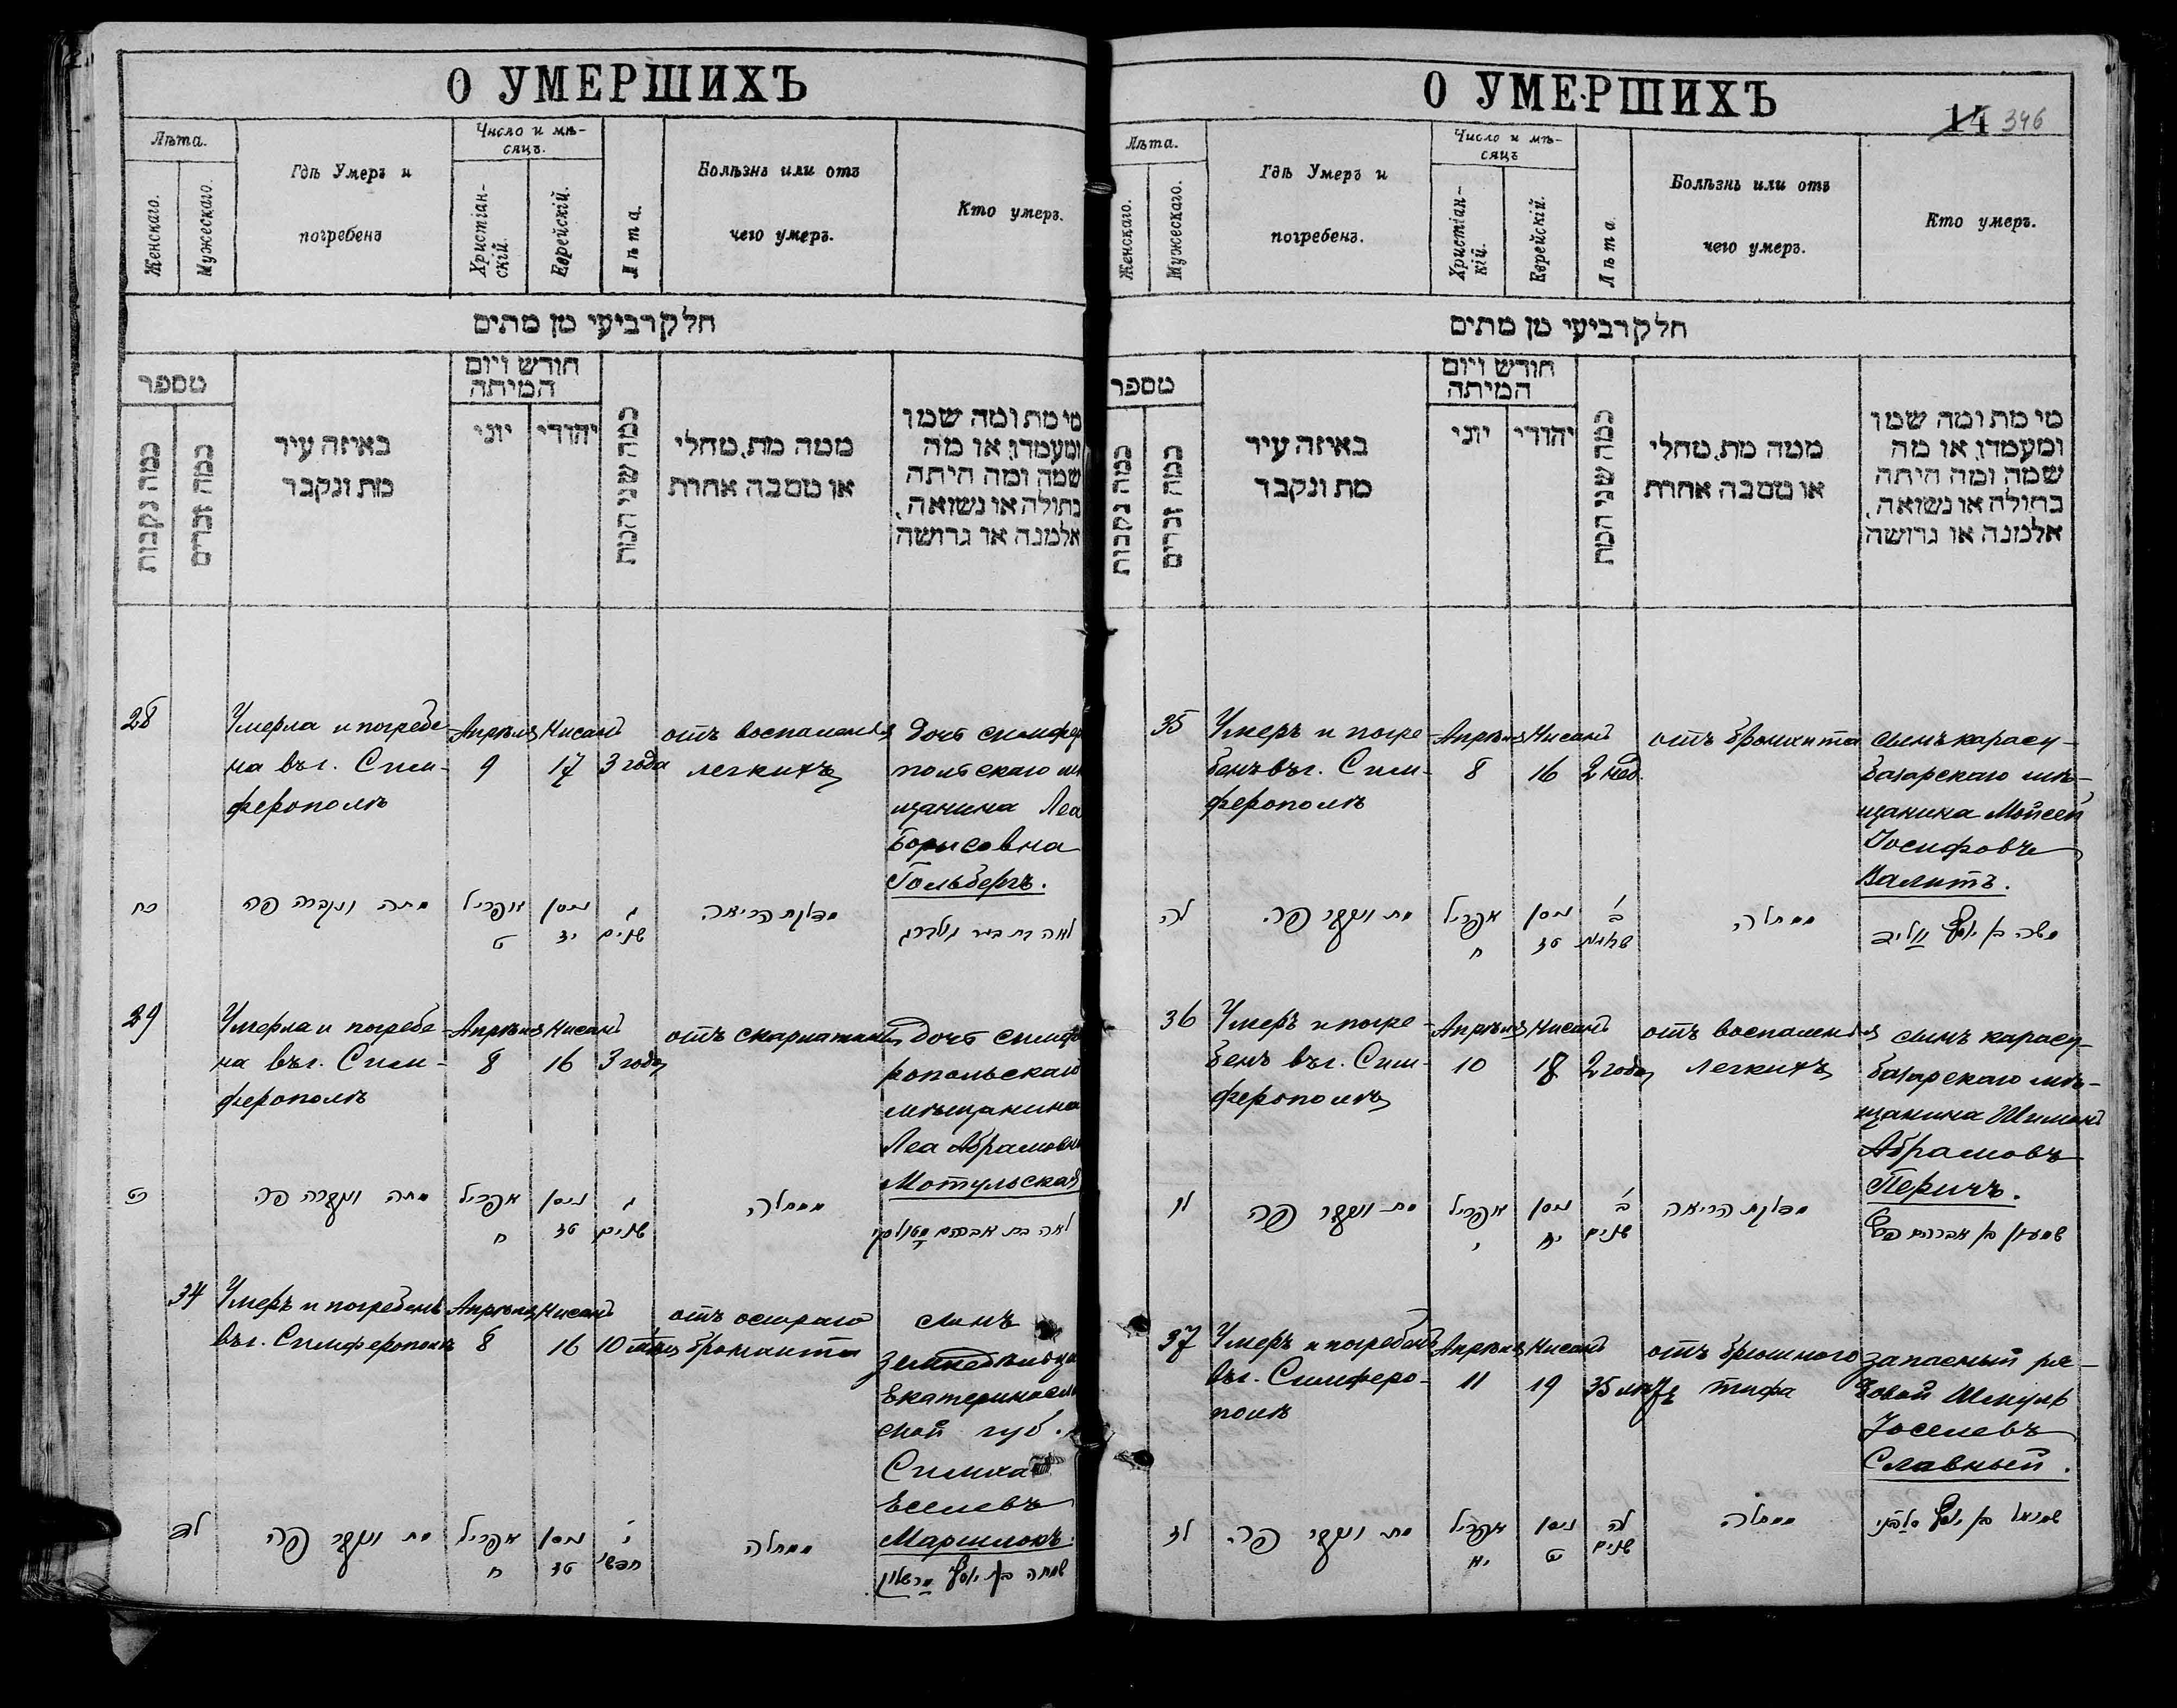 О УМЕРШИХЪ
Лѣта.
Женскаго.
Мужескаго.
Гдѣ Умеръ и
погребенъ
Число и мѣ-
сяцъ.
Христіан-
скій.
Еврейскій.
Лѣта.
Болѣзнь или отъ
чего умеръ.
Кто умеръ.
חלק רביעי מן מתים
מספר
כמה נקבות
כמה זכרים
באיזה עיר
מת ונקבר
חורש ויום
המיתה
יוני
יהודי
כמה שני המת
ממה מת, מחלי
או מסבה אחרת
מי מת ומה שמו
ומעמדו, או מה
שמה ומה היתה
בתולה או נשואה,
אלמנה או גרושה
28
Умерла и погребе-
на въ г. Сим-
ферополѣ
Апрѣля
9
Нисанъ
17
3 года
отъ воспаленія
легкихъ
Дочь симфер
польскаго мѣ
щанина Леа
Борисовна
Гольбергъ.
כח
מתה ונקברה פה
אפריל
ט
ניסן
יז
ג
שנים
מדלקת הריאה
לאה בת בער גולברג
29
Умерла и погребе-
на въ г. Сим-
ферополѣ
Апрѣля
8
Нисанъ
16
3 года
отъ скарлатины
Дочь симфе
ропольскаго
мѣщанина
Леа Абрамовн
Мотульская
כט
מתה ונקברה פה
אפריל
ח
ניסן
טז
ג
שנים
ממחלה
לאה בת אברהם
34
Умеръ и погребенъ
въ г. Симферополѣ
Апрѣля
8
Нисанъ
16
10 мѣс
отъ остраго
бронхита
сынъ
земледѣльца
Екатеринослав
ской губ.
Симха
Еселевъ
Маршлокъ.
לד
מת ונקבר פה
אפריל
ח
ניסן
טז
י
חדשי
ממחלה
שמחה בן יוסף
О УМЕРШИХЪ
14 346
Лѣта.
Женскаго.
Мужескаго.
Гдѣ Умеръ и
погребенъ.
Число и мѣ-
сяцъ
Христіан-
кій.
Еврейскій.
Лѣта
Болѣзнь или отъ
чего умеръ.
Кто умеръ.
חלק רביעי מן מתים
מספר
כמה נקבות
כמה זכרים
באיזה עיר
מת ונקבר
חורש ויום
המיתה
יוני
יהודי
כמה שני המת
ממה מת, מחלי
או מסבה אחרת
מי מת ומה שמו
ומעמדו, או מה
שמה ומה היתה
בתולה או נשואה,
אלמנה או גרושה
35
Умеръ и погре-
бенъ въ г. Сим-
ферополѣ
Апрѣля
8
Нисанъ
16
2 нед.
отъ бронхита
сынъ карасу-
базарскаго мѣ-
щанина Мойсей
Іосифовъ
Валитъ.
לה
מת ונקבר פה
אפריל
ח
ניסן
טז
ב
שבועות
ממחלה
משה בן יוסף
36
Умеръ и погре-
бенъ въ г. Сим-
ферополѣ
Апрѣля
10
Нисанъ
18
2 года
отъ воспаленія
легкихъ
сынъ карасу-
базарскаго мѣ-
щанина Шимонъ
Абрамовъ
Перичъ.
לו
מת ונקבר פה
אפריל
י
ניסן
יח
ב
שנים
מדלקת הריאה
שמעון בן אברהם
37
Умеръ и погребенъ
въ г. Симферо-
полѣ
Апрѣля
11
Нисанъ
19
35 лѣтъ
отъ брюшного
тифа
запасный ря-
довой Шмуль
Іоселевъ
Славный.
לז
מת ונקבר פה
אפריל
יא
ניסן
יט
לה
שנים
ממחלה
שמואל בן יוסף